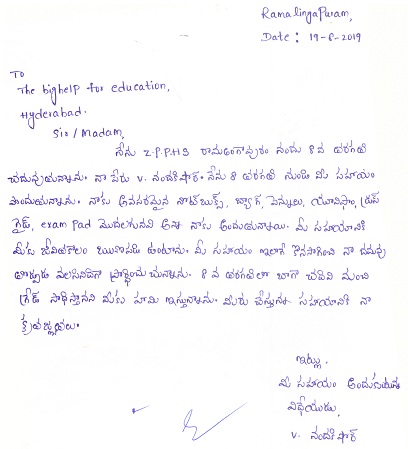 Ramalingapuram,
Date : 19-6-2019
To
The bighelp for education,
Hyderabad.
Sir/Madam,
నేను Z.P.P.H.S రామలింగాపురం నందు 8 వ తరగతి
చదువుచున్నాను. నా పేరు V. నందకిషోర్. నేను 8 తరగతి నుండి మీ సహాయం
పొందుతున్నాను. నాకు అవసరమైన నోట్ బుక్స్, బ్యాగ్, పెన్నులు, యూనిఫాం,
గైడ్, exam pad మొదలగునవి అన్ని నాకు అందుతున్నాయి. మీ సహాయానికి
మీకు జీవితకాలం ఋణపడి ఉంటాను. మీ సహాయం ఇలాగే కొనసాగించి నా చదువు
వలసినదిగా ప్రార్థించుచున్నాను. 8 వ తరగతిలో బాగా చదివి మంచి
గ్రేడ్ సాధిస్తానని మీకు హామి ఇస్తున్నాను. మీరు చేస్తున్న సహాయానికి నా
కృతజ్ఞతలు.
ఇట్లు.
మీ సహాయం అందుకునే
విధేయుడు,
V. నందకిషోర్